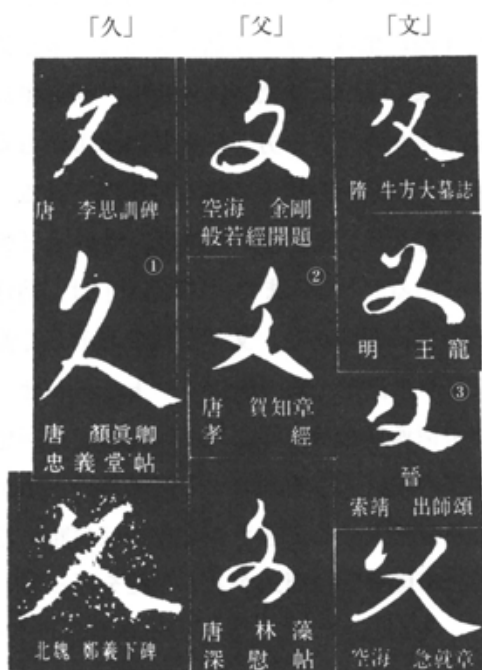 「久」 「父」 「文」
唐 李思訓碑
①
唐 顏眞卿
忠義堂帖
北魏 鄭羲下碑
空海 金剛
般若經開題
②
唐 賀知章
孝經
唐 林藻
深慰帖
隋 牛方大墓誌
明 王寵
③
晉
索靖 出師頌
空海 急就章